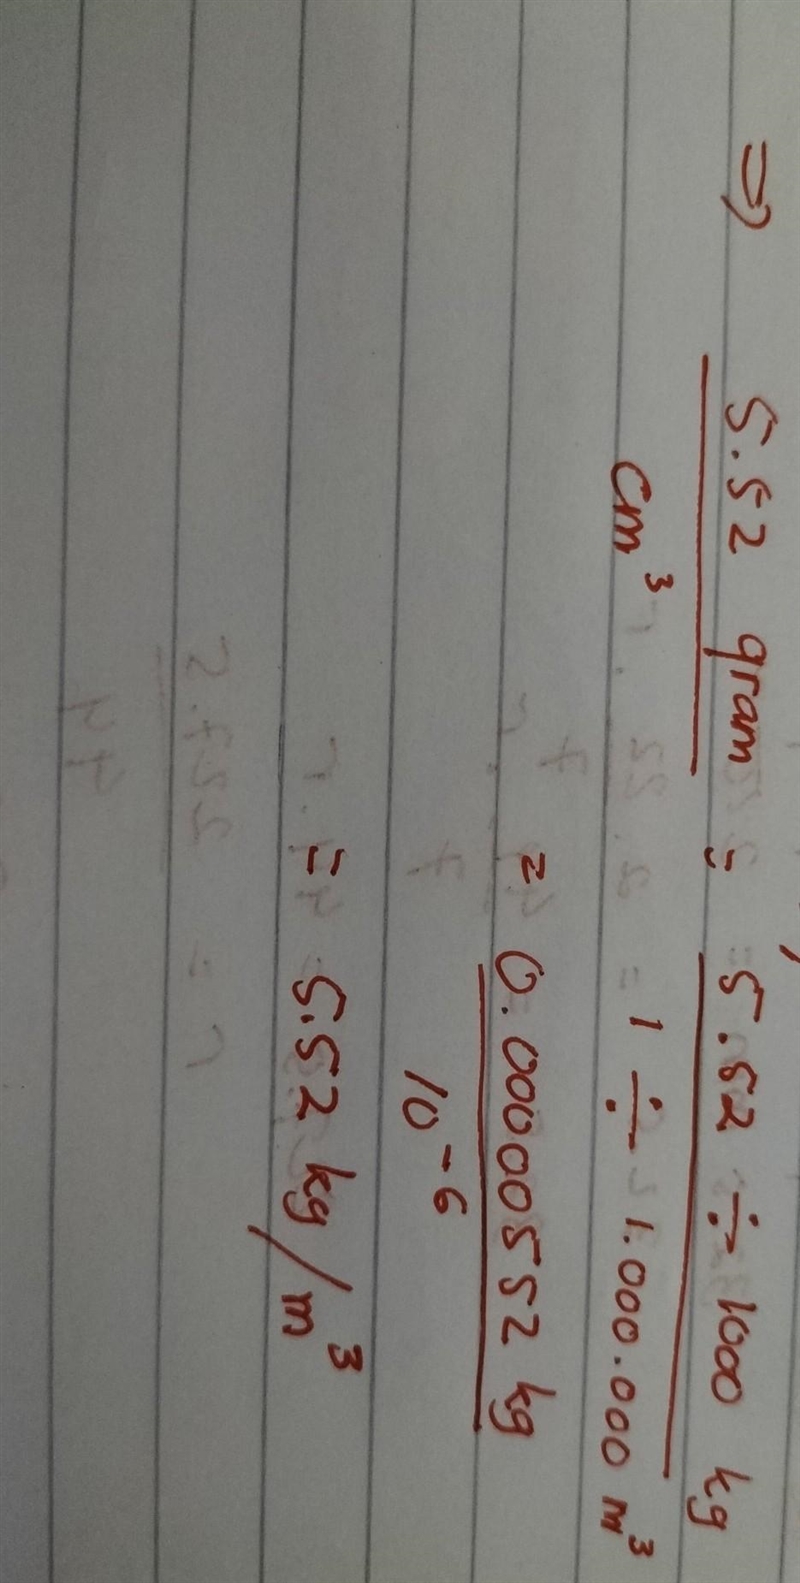 ⇒ 5.52 gram = 5.52 ÷ 1000 kg
cm³ 1 ÷ 1.000.000 m³
= 0.00000552 kg
10⁻⁶
= 5.52 kg/m³